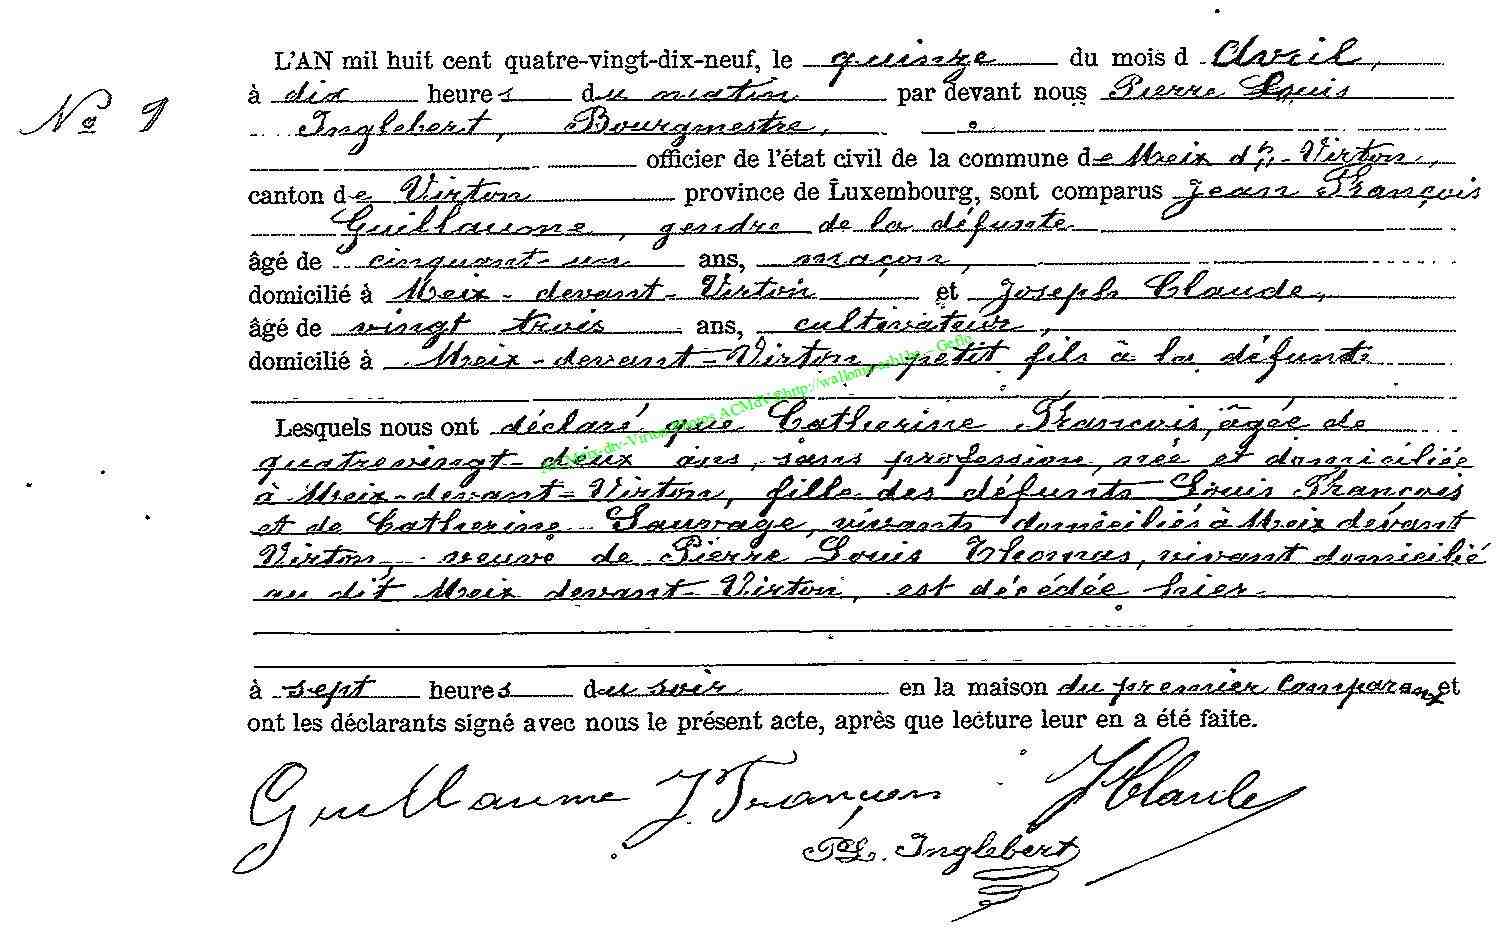 L'AN mil huit cent quatre-vingt-dix-neuf, le quinze du mois d Avril,
à dix heures du matin par devant nous Pierre Louis
No 9
Inglebert, Bourgmestre,
officier de l'état civil de la commune de Meix dt-Virton,
canton de Virton province de Luxembourg, sont comparus Jean François
Guillaume, gendre de la défunte
âgé de cinquant-un ans, maçon,
domicilié à Meix-devant-Virton et Joseph Claude,
âgé de vingt trois ans, cultivateur,
domicilié à Meix-devant-Virton, petit fils à la défunte
Lesquels nous ont déclaré que Catherine François, âgée de
quatrevingt-deux ans, sans profession, née et domiciliée
à Meix-devant-Virton, fille des défunts Louis François
et de Catherine Sauvage, vivants domiciliés à Meix devant
Virton, veuve de Pierre Louis Thomas, vivant domicilié
au dit Meix devant-Virton, est décédée hier
à sept heures du soir en la maison du premier comparant et
ont les déclarants signé avec nous le présent acte, après que lecture leur en a été faite.
Guillaume J. François JClaude
PL. Inglebert